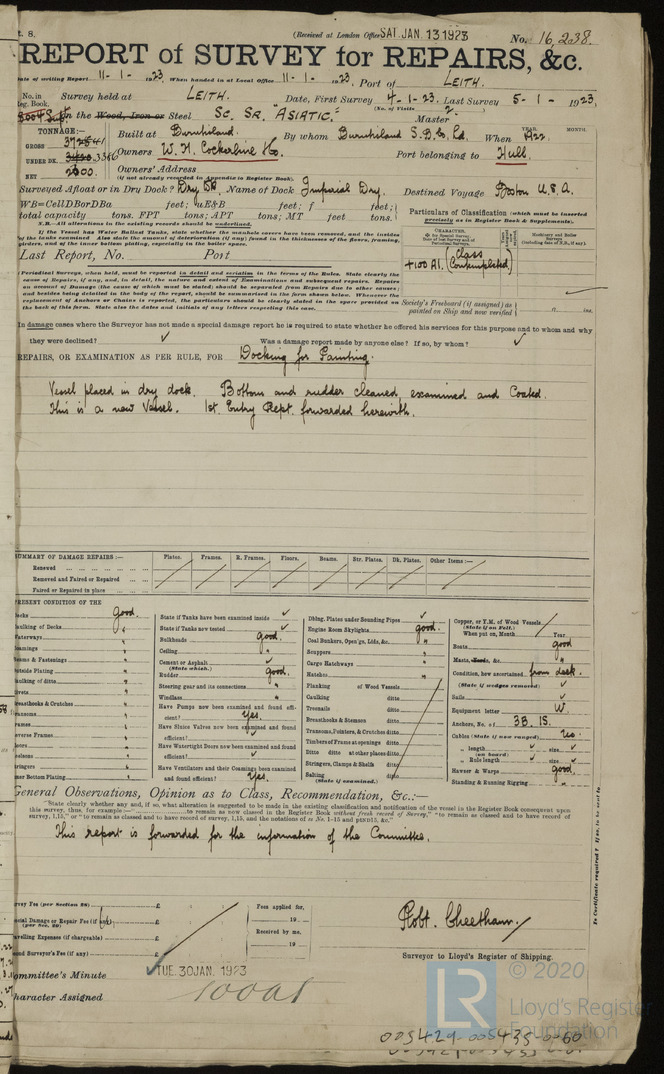 t. 8.
(Received at London Office SAT. JAN. 13 1923
No. 16,238.
REPORT of SURVEY for REPAIRS, &c.
Date of writing Report 11-1-1923. When handed in at Local Office 11-1-1923. Port of LEITH.
No. in Survey held at LEITH. Date, First Survey 4-1-23. Last Survey 5-1-1923
Reg. Book.
(No. of Visits 2
on the Wood, Iron or Steel Sc. Sr. "ASIATIC." Master
TONNAGE:—
GROSS
UNDER DK.
NET 2300
Built at Burntisland. By whom Burntisland S.B. Co Ld. When 1922
YEAR. MONTH.
Owners W. H. Cockerline & Co. Port belonging to Hull.
Owners' Address
(if not already recorded in Appendix to Register Book).
Surveyed Afloat or in Dry Dock? Dry Dk. Name of Dock Imperial Dry. Destined Voyage Boston U.S.A.
WB=CellDBorDBa feet; uE&B feet; f feet;
total capacity tons. FPT tons; APT tons; MT feet tons.
Particulars of Classification (which must be inserted precisely as in Register Book & Supplements).
N.B.—All alterations in the existing records should be underlined.
If the Vessel has Water Ballast Tanks, state whether the manhole covers have been removed, and the insides
of the tanks examined. Also state the amount of deterioration (if any) found in the thicknesses of the floors, framing,
girders, and of the inner bottom plating, especially in the boiler space.
CHARACTER.
+100A1. (Class Contemplated)
Last Report, No. Port
Periodical Surveys, when held, must be reported in detail and seriatim in the terms of the Rules. State clearly the
cause of Repairs, if any, and, in detail, the nature and extent of Examinations and subsequent repairs. Repairs
on account of Damage (the cause of which must be stated) should be separated from Repairs due to other causes;
and besides being detailed in the body of the report, should be summarised in the form shown below. Whenever the
replacement of Anchors or Chains is reported, the particulars should be clearly stated in the space provided on
the back of this form. State also the dates and initials of any letters respecting this case.
Society's Freeboard (if assigned) as
painted on Ship and now verified
ft. ins.
In damage cases where the Surveyor has not made a special damage report he is required to state whether he offered his services for this purpose and to whom and why
they were declined? ✓ Was a damage report made by anyone else? If so, by whom? ✓
REPAIRS, OR EXAMINATION AS PER RULE, FOR Docking for Painting.
Vessel placed in dry dock. Bottom and rudder cleaned, examined and Coated.
This is a new Vessel. 1st Entry Rept. forwarded herewith.
SUMMARY OF DAMAGE REPAIRS:— Plates. Frames. R. Frames. Floors. Beams. Str. Plates. Dk. Plates. Other Items:—
Renewed
Removed and Faired or Repaired
Faired or Repaired in place
PRESENT CONDITION OF THE
Decks good.
Caulking of Decks "
Waterways "
Coamings "
Beams & Fastenings "
Outside Plating "
Caulking of ditto "
Rivets "
Breasthooks & Crutches "
Transoms "
Frames "
Reverse Frames "
Floors "
Keelsons "
Stringers "
Inner Bottom Plating "
State if Tanks have been examined inside ✓
State if Tanks now tested ✓
Bulkheads good.
Ceiling "
Cement or Asphalt ✓
(State which.)
Rudder good.
Steering gear and its connections "
Windlass "
Have Pumps now been examined and found effi-
cient? Yes.
Have Sluice Valves now been examined and found
efficient? ✓
Have Watertight Doors now been examined and found
efficient? ✓
Have Ventilators and their Coamings been examined
and found efficient? Yes.
Dblng. Plates under Sounding Pipes ✓
Engine Room Skylights good.
Coal Bunkers, Open'gs, Lids, &c. "
Scuppers "
Cargo Hatchways "
Hatches "
Planking of Wood Vessels
Caulking ditto
Treenails ditto
Breasthooks & Stemson ditto
Transoms, Pointers, & Crutches ditto
Timbers of Frame at openings ditto
Ditto ditto at other places ditto
Stringers, Clamps & Shelfs ditto
Salting ditto
(State if examined.)
Copper, or Y.M. of Wood Vessels
(State if on Felt.)
When put on, Month Year
Boats good
Masts, Yards, &c. "
Condition, how ascertained from deck.
(State if wedges removed)
Sails ✓
Equipment letter W
Anchors, No. of 3B. 1S.
Cables (State if now ranged) No.
„ length ✓ „ size ✓
(on board)
„ Rule length ✓ „ size ✓
Hawser & Warps good.
Standing & Running Rigging "
General Observations, Opinion as to Class, Recommendation, &c.:—
This report is forwarded for the information of the Committee.
Survey Fee (per Section 29) £
Special Damage or Repair Fee (if any) £
(per Sec. 29)
Travelling Expenses (if chargeable) £
Second Surveyor's Fee (if any) £
Fees applied for,
19
Received by me,
19
Robt. Cheetham.
Surveyor to Lloyd's Register of Shipping.
Committee's Minute TUE. 30 JAN. 1923
Character Assigned 100A1
LR
© 2020
Lloyd's Register
Foundation
005429-005435-0060